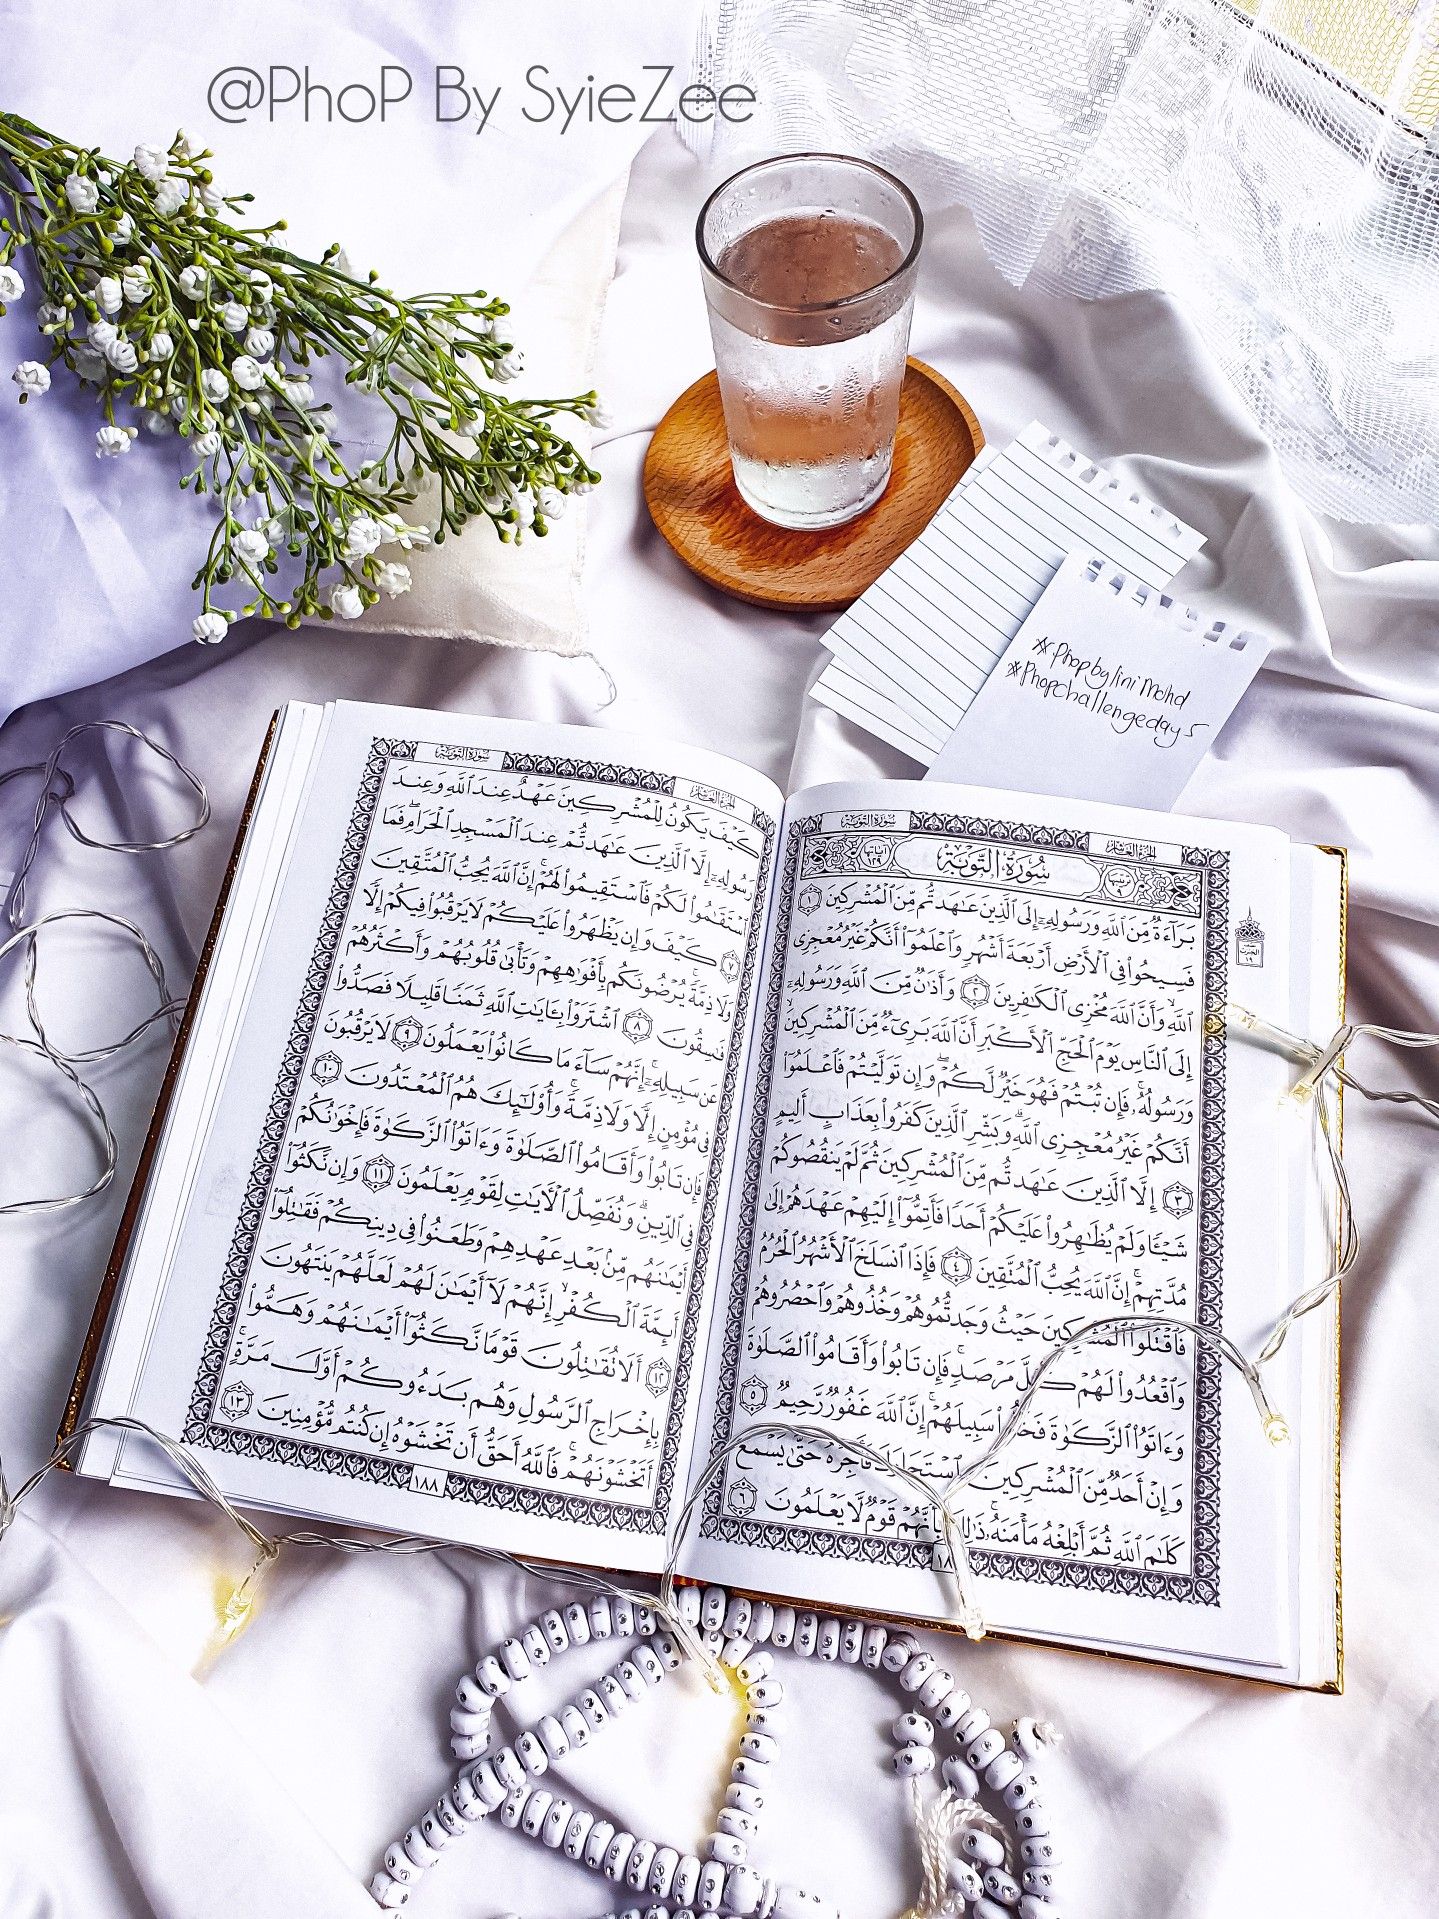 @PhoP By SyieZee
#Phopbylini Mohd
#Phopchallengeday5
سُورَةُ التَّوْبَةِ
الجُزءُ العَاشِرُ
سُورَةُ التَّوْبَةِ
آياتها ١٢٩
بَرَآءَةٌ مِّنَ ٱللَّهِ وَرَسُولِهِۦٓ إِلَى ٱلَّذِينَ عَٰهَدتُّم مِّنَ ٱلْمُشْرِكِينَ ١
فَسِيحُوا۟ فِى ٱلْأَرْضِ أَرْبَعَةَ أَشْهُرٍ وَٱعْلَمُوٓا۟ أَنَّكُمْ غَيْرُ مُعْجِزِى
ٱللَّهِ ۙ وَأَنَّ ٱللَّهَ مُخْزِى ٱلْكَٰفِرِينَ ٢ وَأَذَٰنٌ مِّنَ ٱللَّهِ وَرَسُولِهِۦٓ
إِلَى ٱلنَّاسِ يَوْمَ ٱلْحَجِّ ٱلْأَكْبَرِ أَنَّ ٱللَّهَ بَرِىٓءٌ مِّنَ ٱلْمُشْرِكِينَ ۙ
وَرَسُولُهُۥ ۚ فَإِن تُبْتُمْ فَهُوَ خَيْرٌ لَّكُمْ ۖ وَإِن تَوَلَّيْتُمْ فَٱعْلَمُوٓا۟
أَنَّكُمْ غَيْرُ مُعْجِزِى ٱللَّهِ ۗ وَبَشِّرِ ٱلَّذِينَ كَفَرُوا۟ بِعَذَابٍ أَلِيمٍ
٣ إِلَّا ٱلَّذِينَ عَٰهَدتُّم مِّنَ ٱلْمُشْرِكِينَ ثُمَّ لَمْ يَنقُصُوكُمْ
شَيْـًٔا وَلَمْ يُظَٰهِرُوا۟ عَلَيْكُمْ أَحَدًا فَأَتِمُّوٓا۟ إِلَيْهِمْ عَهْدَهُمْ إِلَىٰ
مُدَّتِهِمْ ۚ إِنَّ ٱللَّهَ يُحِبُّ ٱلْمُتَّقِينَ ٤ فَإِذَا ٱنسَلَخَ ٱلْأَشْهُرُ ٱلْحُرُمُ
فَٱقْتُلُوا۟ ٱلْمُشْرِكِينَ حَيْثُ وَجَدتُّمُوهُمْ وَخُذُوهُمْ وَٱحْصُرُوهُمْ
وَٱقْعُدُوا۟ لَهُمْ كُلَّ مَرْصَدٍ ۚ فَإِن تَابُوا۟ وَأَقَامُوا۟ ٱلصَّلَوٰةَ
وَءَاتَوُا۟ ٱلزَّكَوٰةَ فَخَلُّوا۟ سَبِيلَهُمْ ۚ إِنَّ ٱللَّهَ غَفُورٌ رَّحِيمٌ ٥
وَإِنْ أَحَدٌ مِّنَ ٱلْمُشْرِكِينَ ٱسْتَجَارَكَ فَأَجِرْهُ حَتَّىٰ يَسْمَعَ
كَلَٰمَ ٱللَّهِ ثُمَّ أَبْلِغْهُ مَأْمَنَهُۥ ۚ ذَٰلِكَ بِأَنَّهُمْ قَوْمٌ لَّا يَعْلَمُونَ ٦
سُورَةُ التَّوْبَةِ
الجُزءُ العَاشِرُ
كَيْفَ يَكُونُ لِلْمُشْرِكِينَ عَهْدٌ عِندَ ٱللَّهِ وَعِندَ
رَسُولِهِۦٓ إِلَّا ٱلَّذِينَ عَٰهَدتُّمْ عِندَ ٱلْمَسْجِدِ ٱلْحَرَامِ ۖ فَمَا
ٱسْتَقَٰمُوا۟ لَكُمْ فَٱسْتَقِيمُوا۟ لَهُمْ ۚ إِنَّ ٱللَّهَ يُحِبُّ ٱلْمُتَّقِينَ
٧ كَيْفَ وَإِن يَظْهَرُوا۟ عَلَيْكُمْ لَا يَرْقُبُوا۟ فِيكُمْ إِلًّا
وَلَا ذِمَّةً ۚ يُرْضُونَكُم بِأَفْوَٰهِهِمْ وَتَأْبَىٰ قُلُوبُهُمْ وَأَكْثَرُهُمْ
فَٰسِقُونَ ٨ ٱشْتَرَوْا۟ بِـَٔايَٰتِ ٱللَّهِ ثَمَنًا قَلِيلًا فَصَدُّوا۟
عَن سَبِيلِهِۦٓ ۚ إِنَّهُمْ سَآءَ مَا كَانُوا۟ يَعْمَلُونَ ٩ لَا يَرْقُبُونَ
فِى مُؤْمِنٍ إِلًّا وَلَا ذِمَّةً ۚ وَأُو۟لَٰٓئِكَ هُمُ ٱلْمُعْتَدُونَ ١٠
فَإِن تَابُوا۟ وَأَقَامُوا۟ ٱلصَّلَوٰةَ وَءَاتَوُا۟ ٱلزَّكَوٰةَ فَإِخْوَٰنُكُمْ
فِى ٱلدِّينِ ۗ وَنُفَصِّلُ ٱلْـَٔايَٰتِ لِقَوْمٍ يَعْلَمُونَ ١١ وَإِن نَّكَثُوٓا۟
أَيْمَٰنَهُم مِّنۢ بَعْدِ عَهْدِهِمْ وَطَعَنُوا۟ فِى دِينِكُمْ فَقَٰتِلُوٓا۟
أَئِمَّةَ ٱلْكُفْرِ ۙ إِنَّهُمْ لَآ أَيْمَٰنَ لَهُمْ لَعَلَّهُمْ يَنتَهُونَ
١٢ أَلَا تُقَٰتِلُونَ قَوْمًا نَّكَثُوٓا۟ أَيْمَٰنَهُمْ وَهَمُّوا۟
بِإِخْرَاجِ ٱلرَّسُولِ وَهُم بَدَءُوكُمْ أَوَّلَ مَرَّةٍ ۚ
أَتَخْشَوْنَهُمْ ۚ فَٱللَّهُ أَحَقُّ أَن تَخْشَوْهُ إِن كُنتُم مُّؤْمِنِينَ ١٣
١٨٨